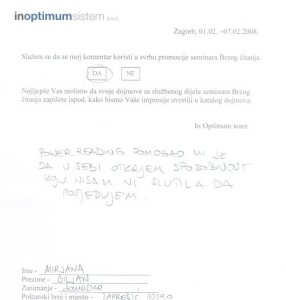 inoptimumsistem d.o.o.
Zagreb, 01.02. –07.02.2008.
Slažem se da se moj komentar koristi u svrhu promocije seminara Brzog čitanja.
DA NE
Najljepše Vas molimo da svoje dojmove sa službenog dijela seminara Brzog
čitanja zapišete ispod, kako bismo Vaše impresije uvrstili u katalog dojmova.
In Optimum team
POWER READING POMOGAO MI JE
DA U SEBI OTKRIJEM SPOSOBNOST
KOJU NISAM NI SLUTILA DA
POSJEDUJEM.
Ime - MIRJANA
Prezime - BILJAN
Zanimanje -
Poštanski broj i mjesto - ZAPREŠIĆ 10290